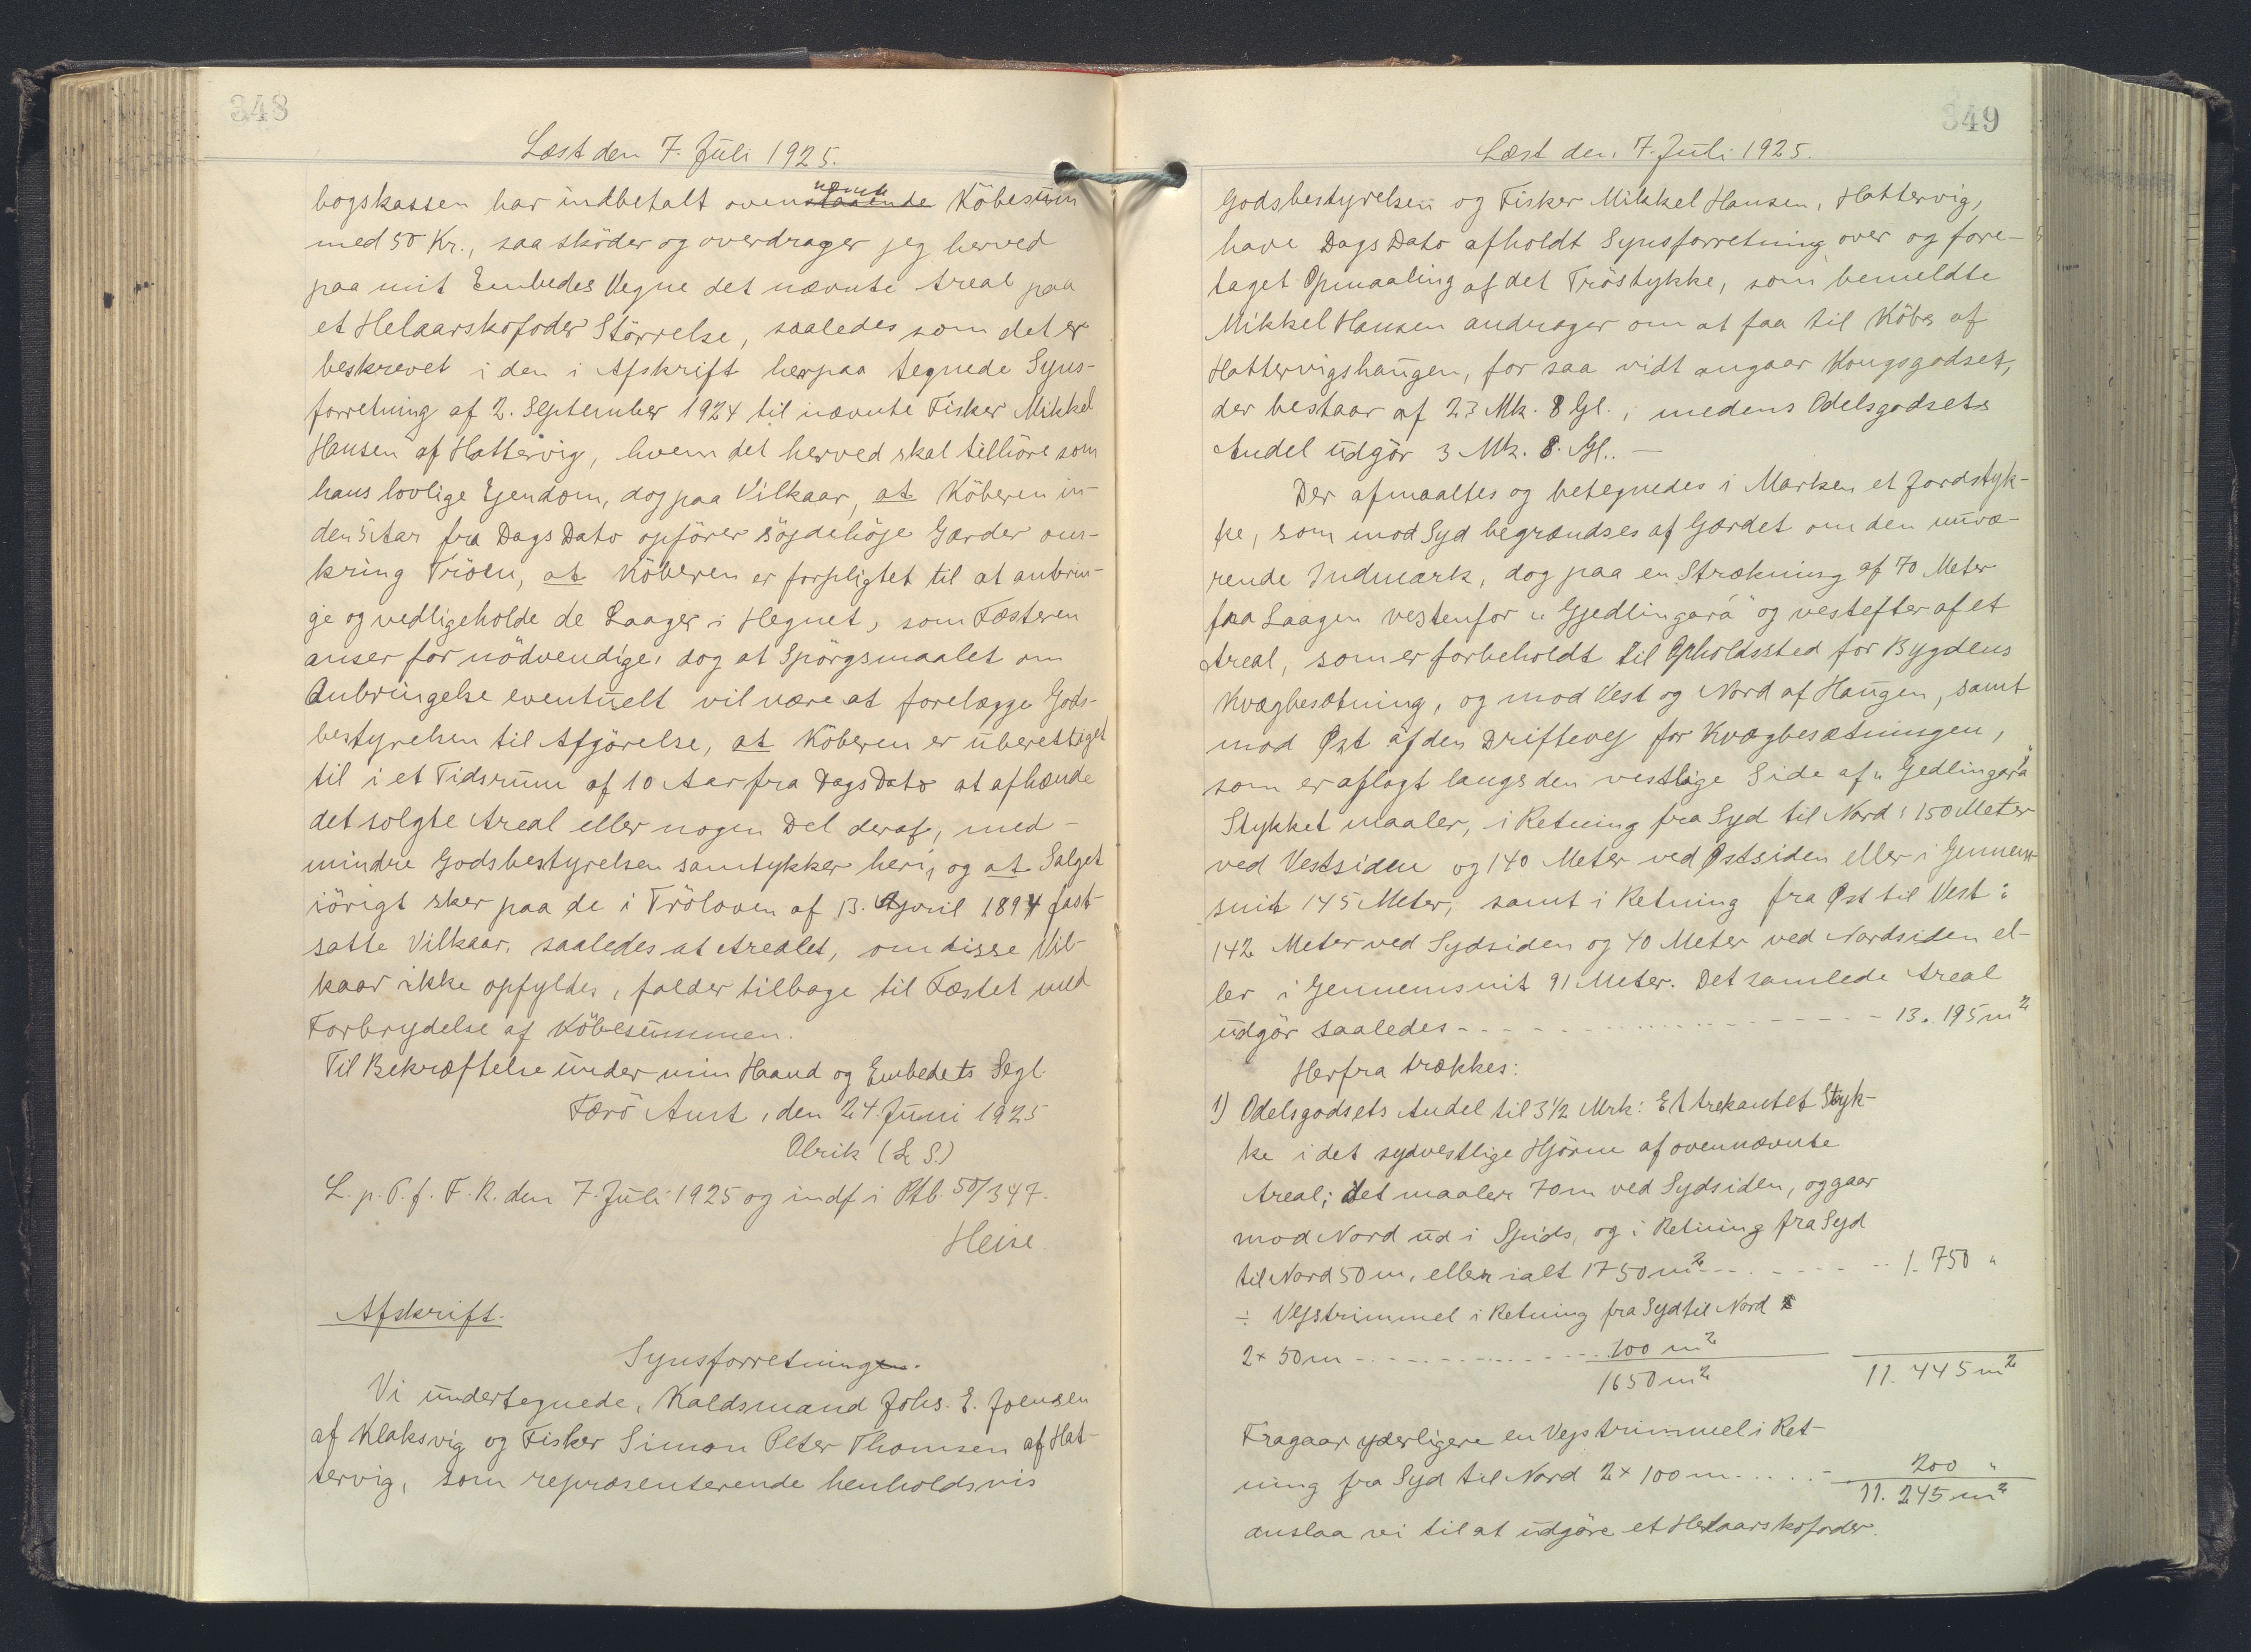 348
Læst den 7. Juli 1925.
bogskassen har indbetalt ovennævnte Köbesum
med 50 Kr., saa sköder og overdrager jeg herved
paa mit Embedes Vegne det nævnte Areal paa
et Helaarskofoder Störrelse, saaledes som det er
beskrevet i den i Afskrift herpaa tegnede Syns-
forretning af 2. September 1924 til nævnte Fisker Mikkel
Hansen af Hattervig, hvem det herved skal tilhöre som
hans lovlige Ejendom, dog paa Vilkaar, at Köberen in-
den 5 Aar fra Dags Dato opförer söjdehöje Gærder om-
kring Tröen, at Köberen er forpligtet til at anbrin-
ge og vedligeholde de Laager i Hegnet, som Fæsteren
anser for nödvendige, dog at Spörgsmaalet om
Anbringelse eventuelt vil være at forelægge Gods-
bestyrelsen til Afgörelse, at Köberen er uberettiget
til i et Tidsrum af 10 Aar fra Dags Dato at afhænde
det solgte Areal eller nogen Del deraf, med-
mindre Godsbestyrelsen samtykker heri, og at Salget
iörigt sker paa de i Tröloven af 13. April 1894 fast-
satte Vilkaar, saaledes at Arealet, om disse Vil-
kaar ikke opfyldes, falder tilbage til Fæstet med
Forbrydelse af Köbesummen.
Til Bekræftelse under min Haand og Embedets Segl.
Færö Amt, den 24. Juni 1925
Olrik (L. S.)
L. p. P. f. F. R. den 7. Juli 1925 og indf i Ptb. 50/347.
Heise
Afskrift.
Synsforretning.
Vi undertegnede, Kaldsmand Johs. E. Joensen
af Klaksvig og Fisker Simon Peter Thomsen af Hat-
tervig, som repræsenterende henholdsvis
349
Læst den 7. Juli 1925.
Godsbestyrelsen og Fisker Mikkel Hansen, Hattervig,
have Dags Dato afholdt Synsforretning over og fore-
taget Opmaaling af det Tröstykke, som bemeldte
Mikkel Hansen andrager om at faa til Köbs af
Hattervigshaugen, for saa vidt angaar Kongsgodset,
der bestaar af 23 Mk. 8 Gl., medens Odelsgodsets
Andel udgör 3 Mk. 8. Gl.. —
Der afmaaltes og betegnedes i Marken et Jordstyk-
ke, som mod Syd begrændses af Gærdet om den nuvæ-
rende Indmark, dog paa en Strækning af 70 Meter
fra Laagen vestenfor "Gjedlingará" og vestefter af et
Areal, som er forbeholdt til Opholdssted for Bygdens
Kvægbesætning, og mod Vest og Nord af Haugen, samt
mod Øst af den Driftevej for Kvægbesætningen,
som er aflagt langs den vestlige Side af "Gedlingará"
Stykket maaler, i Retning fra Syd til Nord: 150 Meter
ved Vestsiden og 140 Meter ved Østsiden eller i Gennem-
snit 145 Meter, samt i Retning fra Øst til Vest:
142 Meter ved Sydsiden og 40 Meter ved Nordsiden el-
ler i Gennemsnit 91 Meter. Det samlede Areal
udgör saaledes - - - - - - - - 13.195 m2
Herfra trækkes:
1) Odelsgodsets Andel til 3 1/2 Mrk: Et trekantet Styk-
ke i det sydvestlige Hjörne af ovennævnte
Areal; det maaler 70 m ved Sydsiden, og gaar
mod Nord ud i Spids, og i Retning fra Syd
til Nord 50 m, eller ialt 1750 m2 - - - - - - 1.750 "
÷ Vejstrimmel i Retning fra Syd til Nord
2 × 50 m - - - - - - - 100 m2
1650 m2 11.445 m2
Fragaar yderligere en Vejstrimmel i Ret-
ning fra Syd til Nord 2 × 100 m . . . . . - 200 "
11.245 m2
anslaa vi til at udgöre et Helaarskofoder.